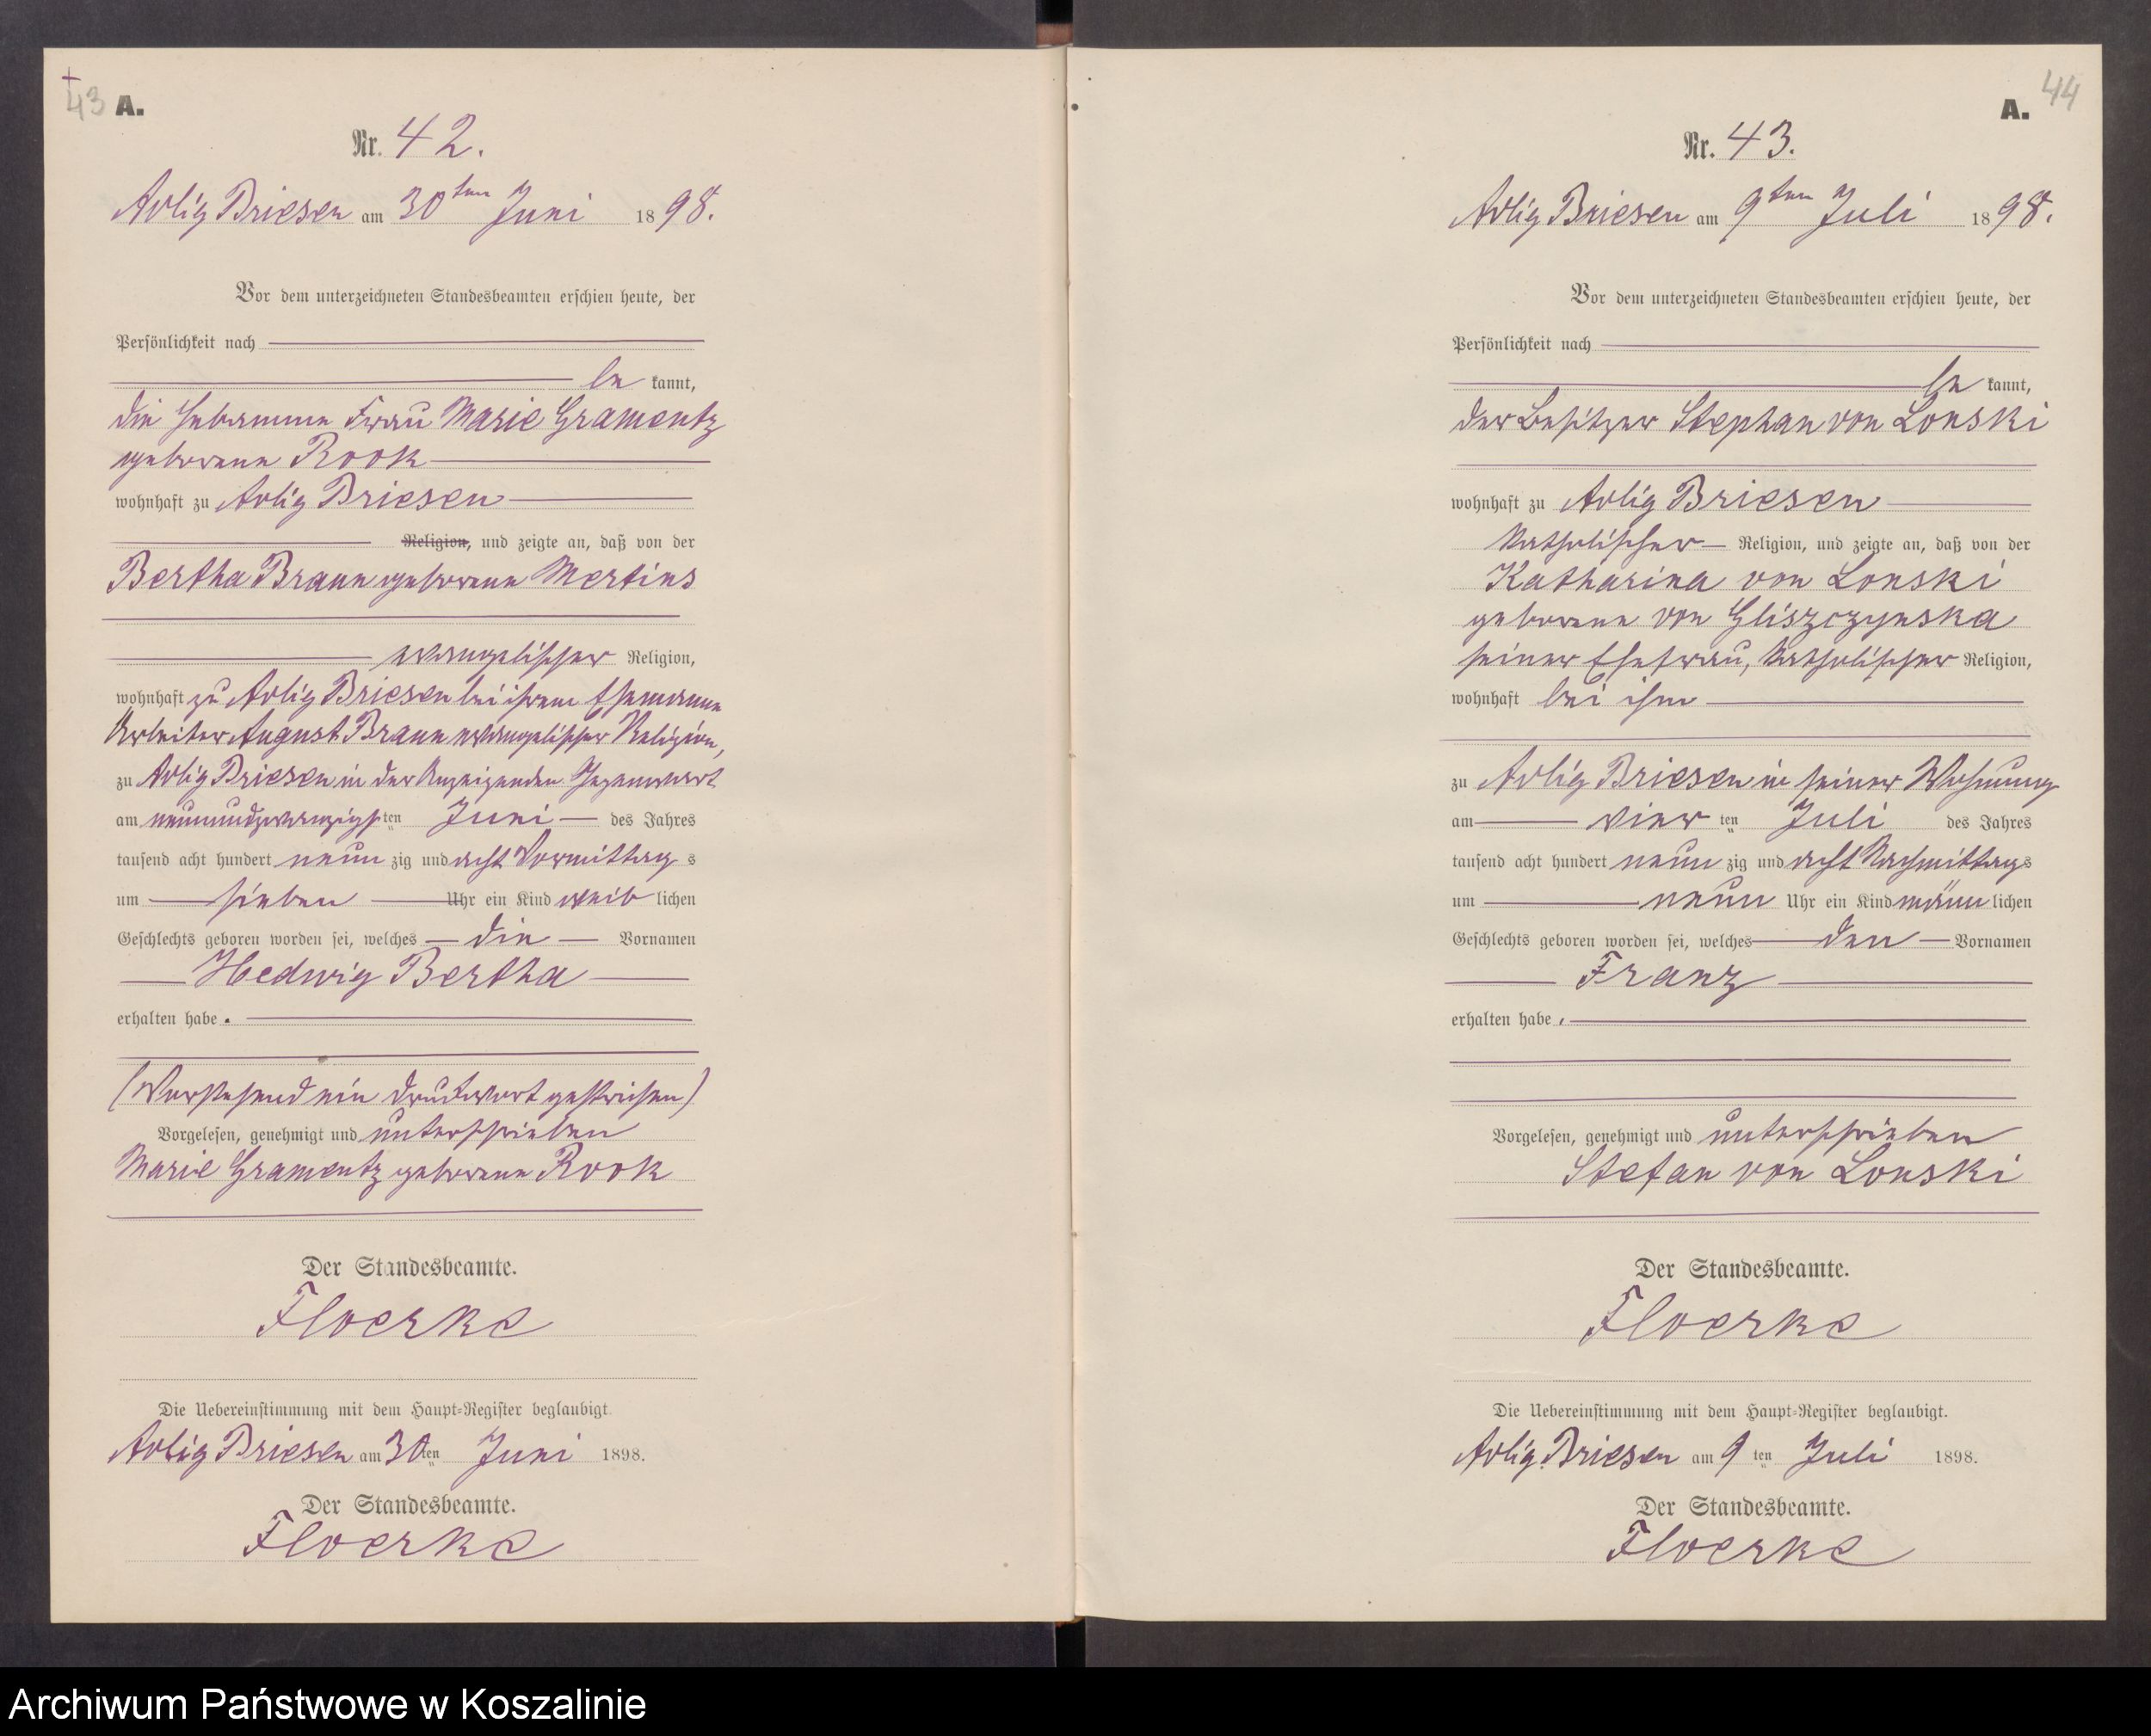 43 A.
Nr. 42.
Adlig Briesen am 30ten Juni 1898.
Vor dem unterzeichneten Standesbeamten erschien heute, der
Persönlichkeit nach
be kannt,
die Hebamme Frau Marie Gramentz
geborene Rook
wohnhaft zu Adlig Briesen
Religion, und zeigte an, daß von der
Bertha Braun geborene Mertins
evangelischer Religion,
wohnhaft zu Adlig Briesen bei ihrem Ehemanne
Arbeiter August Braun evangelischer Religion,
zu Adlig Briesen in der Anzeigenden Gegenwart
am neunundzwanzigsten Juni des Jahres
tausend acht hundert neunzig und acht Vormittags
um sieben Uhr ein Kind weiblichen
Geschlechts geboren worden sei, welches die Vornamen
Hedwig Bertha
erhalten habe.
(Vorstehend ein Druckwort gestrichen)
Vorgelesen, genehmigt und unterschrieben
Marie Gramentz geborene Rook
Der Standesbeamte.
Floerke
Die Uebereinstimmung mit dem Haupt-Register beglaubigt.
Adlig Briesen am 30ten Juni 1898.
Der Standesbeamte.
Floerke
A. 44
Nr. 43.
Adlig Briesen am 9ten Juli 1898.
Vor dem unterzeichneten Standesbeamten erschien heute, der
Persönlichkeit nach
be kannt,
der Besitzer Stephan von Lonski
wohnhaft zu Adlig Briesen
katholischer Religion, und zeigte an, daß von der
Katharina von Lonski
geborene von Gliszczynska
seiner Ehefrau, katholischer Religion,
wohnhaft bei ihm
zu Adlig Briesen in seiner Wohnung
am vierten Juli des Jahres
tausend acht hundert neunzig und acht Nachmittags
um neun Uhr ein Kind männlichen
Geschlechts geboren worden sei, welches den Vornamen
Franz
erhalten habe.
Vorgelesen, genehmigt und unterschrieben
Stefan von Lonski
Der Standesbeamte.
Floerke
Die Uebereinstimmung mit dem Haupt-Register beglaubigt.
Adlig Briesen am 9ten Juli 1898.
Der Standesbeamte.
Floerke
Archiwum Państwowe w Koszalinie